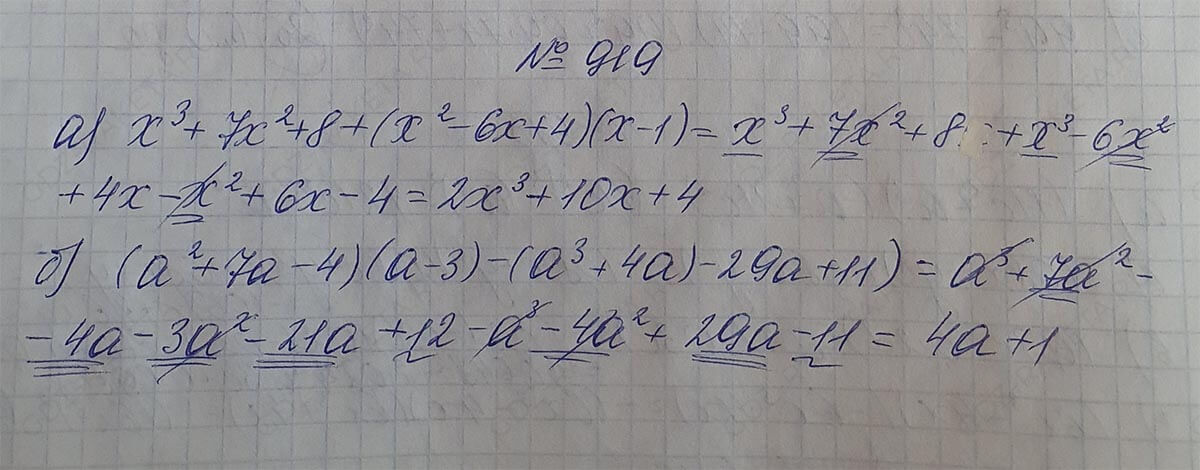 № 919
а) x³ + 7x² + 8 + (x² - 6x + 4)(x - 1) = x³ + 7x² + 8 + x³ - 6x²
+ 4x - x² + 6x - 4 = 2x³ + 10x + 4
б) (a² + 7a - 4)(a - 3) - (a³ + 4a) - 29a + 11) = a³ + 7a² -
- 4a - 3a² - 21a + 12 - a³ - 4a² + 29a - 11 = 4a + 1